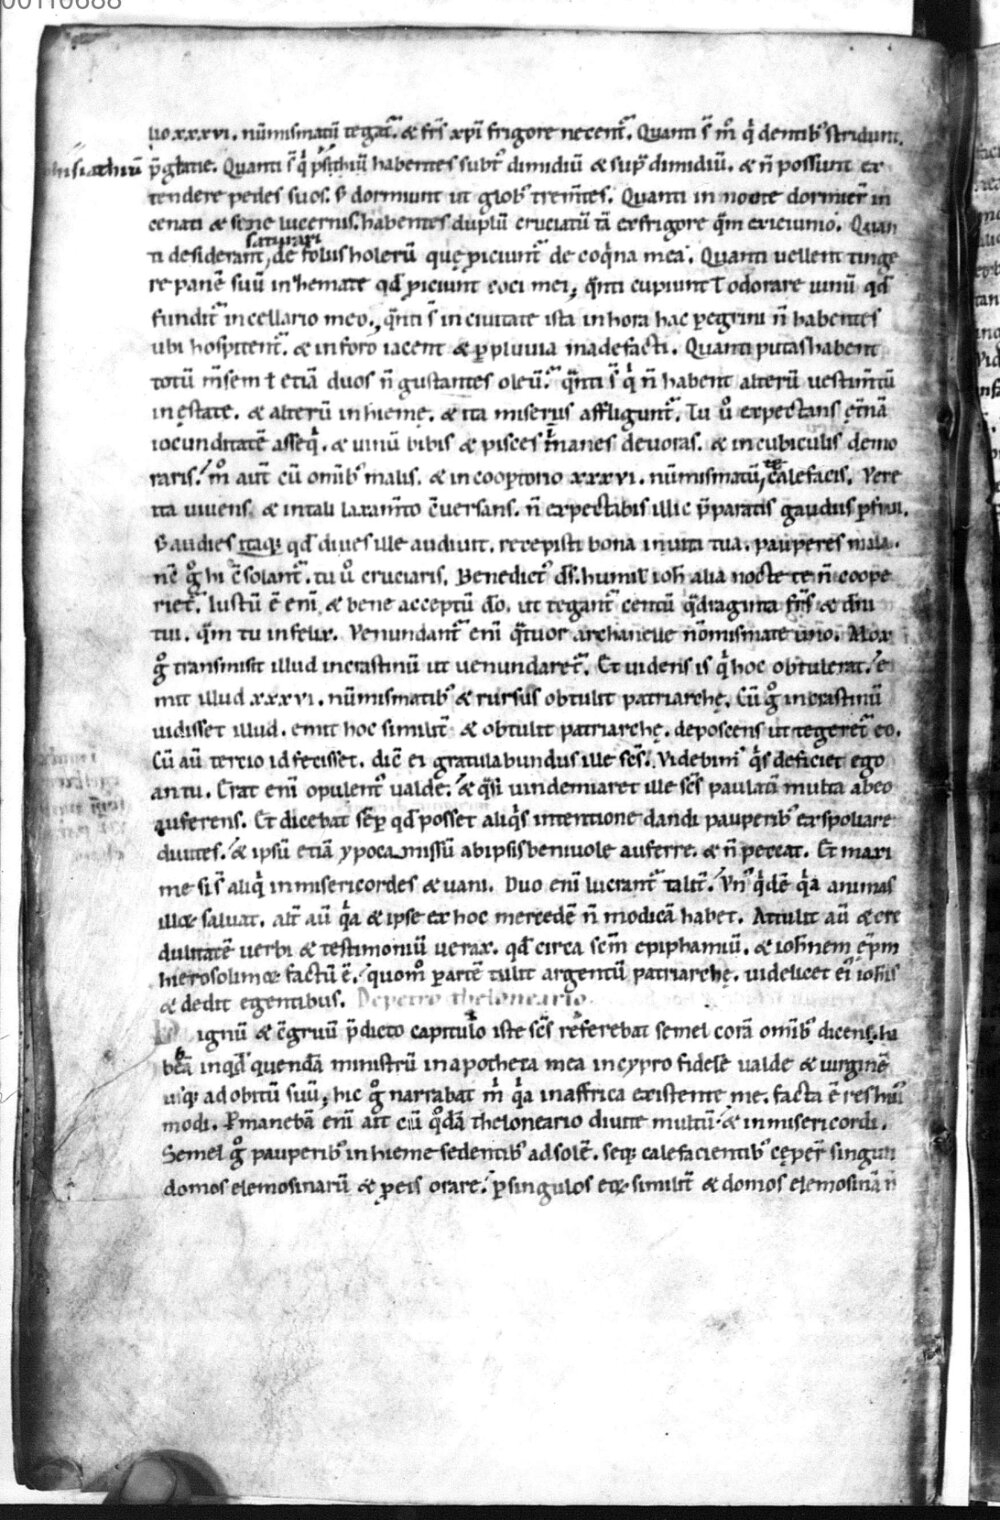 00110688
lio xxxvi. nūmismatū tegat᷑. & frs̄ xp̄i frigore necent᷑. Quanti s̄ m̊ q̇ dentib᷒ stridunt.
hisiathiū p̄ glatie. Quanti s̄ q̇ psithiū habentes subt᷑ dimidiū & sup̄ dimidiū. & n̄ possunt ex
tendere pedes suos. s; dormiunt ut glob᷒ trem̄tes. Quanti in monte dormier̄ in
cenati & sene lucernis. habentes duplū cruciatū tā ex frigore q̄m ex ieiunio. Quan
ti desiderant, saturari de foliis holerū quę piciunt᷑ de coq̇na mea. Quanti uellent tinge
re panē suū in hemate qd̄ piciunt coci mei; q̄nti cupiunt ł odorare uinū qd̄
fundit᷑ in cellario meo., q̄nti s̄ in ciuitate ista in hora hac peregrini n̄ habentes
ubi hospitent᷑. & in foro iacent & p pluuia madefacti. Quanti putas habent
totū m̄sem ł etiā duos n̄ gustantes oleū. q̄nti s̄ q̇ n̄ habent alterū uestim̄tū
in ęstate. & alterū in hieme. & ita miserius affligunt᷑. Tu ů expectans ęt̄nā
iocunditatē asseq̇. & uinū bibis & pisces īmanes deuoras. & in cubiculis demo
raris. m̊ aut̄ cū omīb᷒ malis. & in cooptorio xxxvi. nūmismatū, te calefacis. Vere
ita uiuens. & in tali laxam̄to cōuersans. n̄ expectabis illic p̄paratis gaudiis pfrui.
s; audies itaq; qd̄ diues ille audiuit. recepisti bona in uita tua. pauperes mala.
nc̄ g̊ hi c̄solant᷑. tu ů cruciaris. Benedict᷒ ds̄. humil᷒ ioh̄ alia nocte te n̄ coope
riet᷑. Iustū ē eni & bene acceptū dō. ut tegant᷑ centū q̄draginta frs̄ & dn̄i
tui. q̄m tu infelix. Venundant᷑ eni q̄tuor archanelle nōmismate uno. Mox
g̊ transmisit illud in crastinū ut uenundaret᷑. Et uidens is q̇ hoc obtulerat. e
mit illud xxxvi. nūmismatib᷒ & rursus obtulit patriarchę. Cū g̊ in crastinū
uidisset illud. emit hoc simil̄it & obtulit patriarchę. deposcens ut tegeret᷑ eo.
Cū aū tercio id fecisset. dic̄ ei gratulabundus ille scs̄. Videbim᷒ q̇s deficiet ego
an tu. Erat eni opulent᷒ ualde. & q̄si uindemiaret ille scs̄ paulatī multa ab eo
auferens. Et dicebat sēp qd̄ posset aliq̇s intentione dandi pauperib᷒ exspoliare
diuites. & ipsū etiā ypocamissū ab ipsis beniuole auferre. & n̄ peccat. Et maxi
me si s̄ aliq̇ inmisericordes & uani. Duo eni lucrant᷑ talit᷑. Vn᷒ q̇dē q̇a animas
illoꝝ saluat. alt᷑ aū q̇a & ipse ex hoc mercedē n̄ modicā habet. Attulit aū & cre
dulitatē uerbi & testimoniū uerax. qd̄ circa scm̄ epiphaniū. & ioh̄nem ep̄m
hierosolimoꝝ factū ē. quom̊ p artē tulit argentū patriarchę. uidelicet ei ioh̄is
& dedit egentibus. De petro theloneario.
Dignū & c̄gruū p̄dicto capitulo iste scs̄ referebat semel corā omīb᷒ dicens. ha
bebā inq̇d quendā ministrū in apotheca mea in cypro fidelē ualde & uirginē
usq; ad obitū suū; hic g̊ narrabat m̄ q̇a in affrica existente me. facta ē res hui᷒
modi. Pmanebā eni ait cū q̇dā theloneario diuite multū & inmisericordi.
Semel g̊ pauperib᷒ in hieme sedentib᷒ ad solē. seq; calefacientib᷒ cęper̄ singuli
domos elemosinarū & p eis orare. p singulos eoꝝ. similit̄ & domos elemosinā n̄